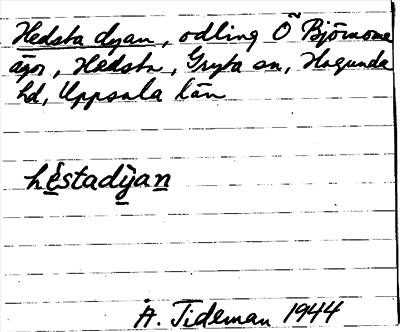 Hedsta dyan, odling Ö Björnome
ägor, Hedsta, Gryta sn, Hagunda
hd, Uppsala län
hèstadỳan
A. Tideman 1944